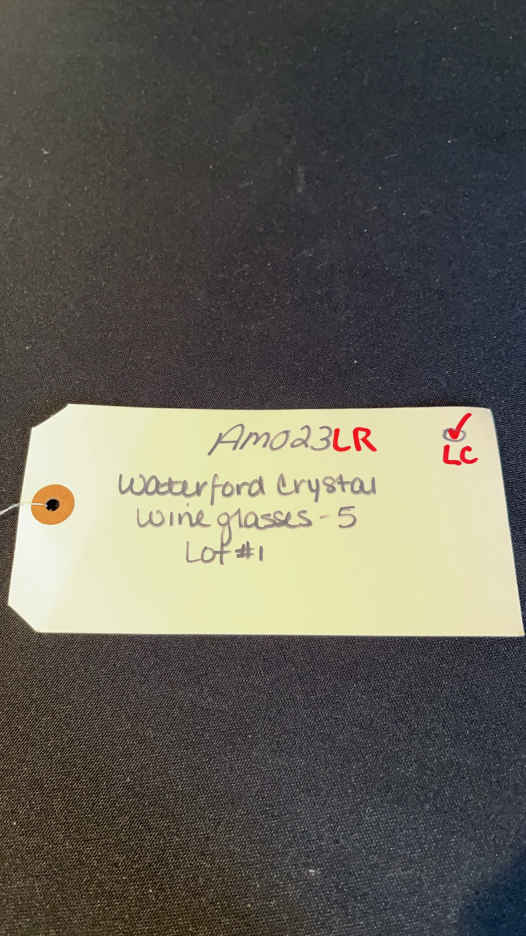 AM023LR
LC
Waterford Crystal
Wine glasses - 5
Lot #1